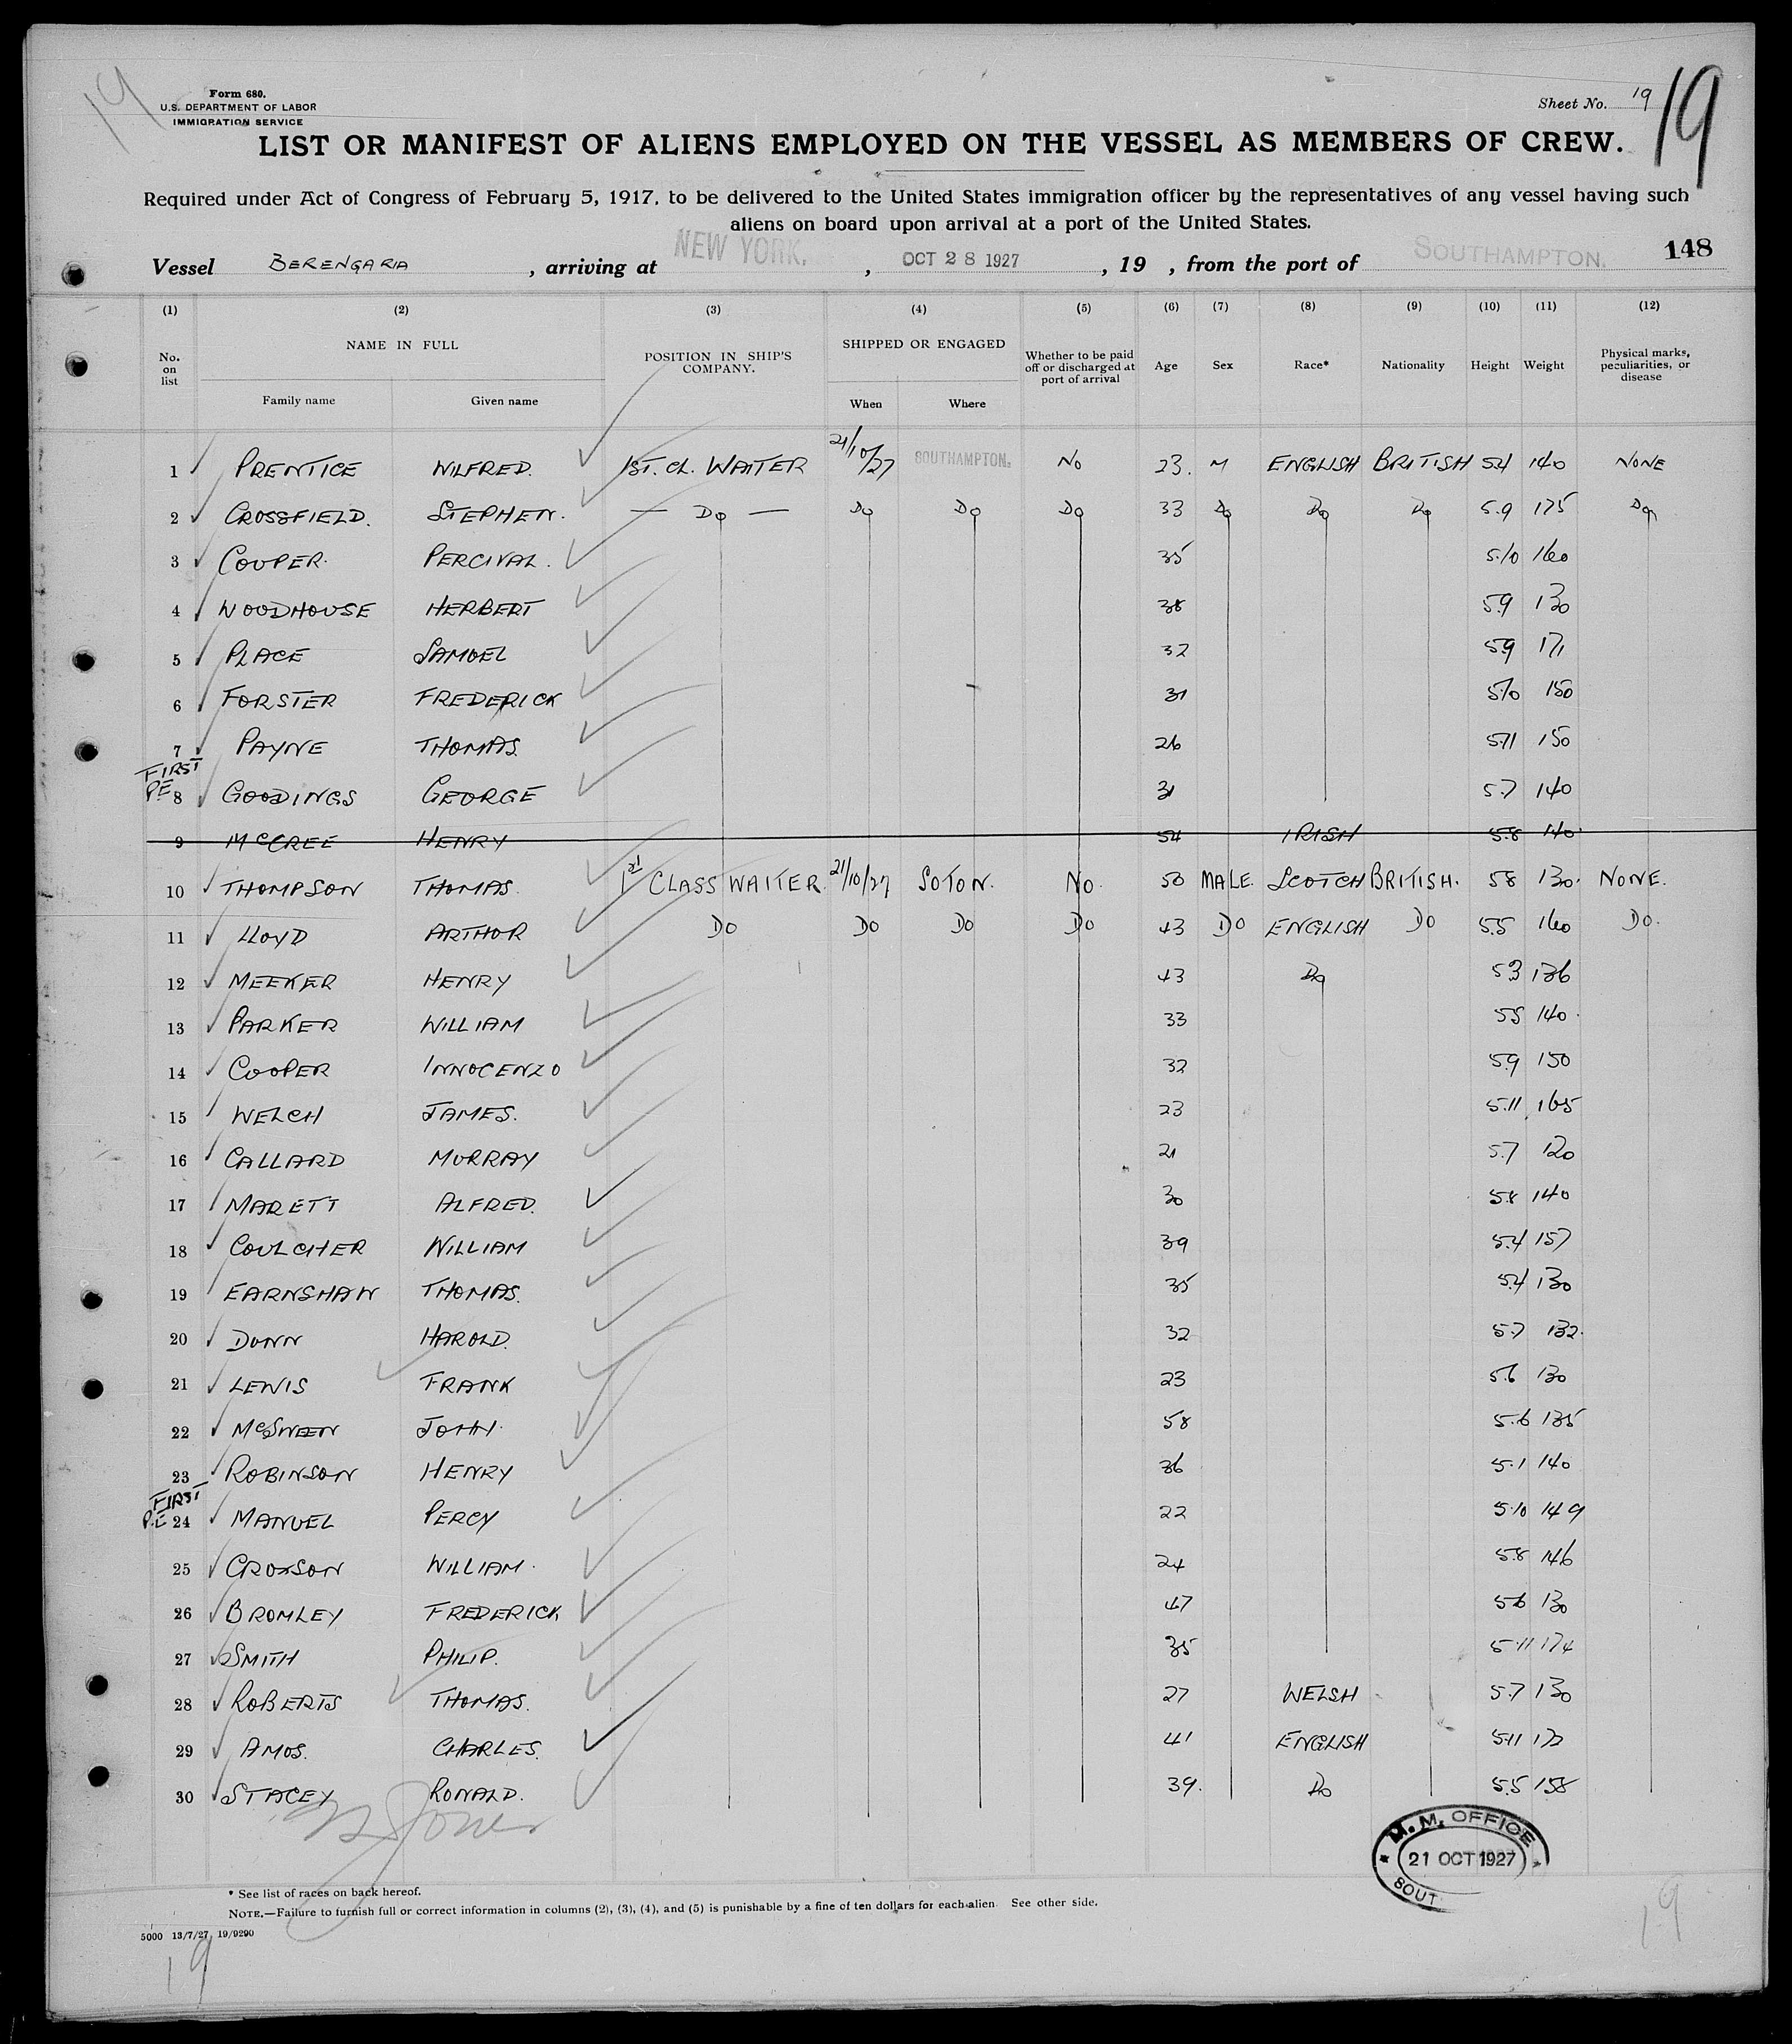 19
Form 680.
U.S. DEPARTMENT OF LABOR
IMMIGRATION SERVICE
Sheet No. 19
19
LIST OR MANIFEST OF ALIENS EMPLOYED ON THE VESSEL AS MEMBERS OF CREW.
Required under Act of Congress of February 5, 1917, to be delivered to the United States immigration officer by the representatives of any vessel having such
aliens on board upon arrival at a port of the United States.
Vessel BERENGARIA , arriving at NEW YORK. , OCT 28 1927 , 19 , from the port of SOUTHAMPTON. 148
(1) (2) (3) (4) (5) (6) (7) (8) (9) (10) (11) (12)
No. on list NAME IN FULL Family name Given name POSITION IN SHIP'S COMPANY. SHIPPED OR ENGAGED When Where Whether to be paid off or discharged at port of arrival Age Sex Race* Nationality Height Weight Physical marks, peculiarities, or disease
1 PRENTICE WILFRED. 1ST. CL. WAITER 21/10/27 SOUTHAMPTON. No 23. M ENGLISH BRITISH 5.4 140 NONE
2 CROSSFIELD. STEPHEN. — Do — Do Do Do 33 Do Do Do 5.9 175 Do
3 COUPER. PERCIVAL. 35 5.10 160
4 WOODHOUSE HERBERT 38 5.9 130
5 PLACE SAMUEL 32 5.9 171
6 FORSTER FREDERICK 31 5.10 150
7 PAYNE THOMAS. 26 5.11 150
FIRST
P.E 8 GOODINGS GEORGE 31 5.7 140
9 McCREE HENRY 54 IRISH 5.8 140
10 THOMPSON THOMAS. 1st CLASS WAITER. 21/10/27 SOTON. No. 50 MALE. SCOTCH BRITISH. 5.8 130. NONE.
11 LLOYD ARTHUR Do Do Do Do 43 Do ENGLISH Do 5.5 160 Do.
12 MEEKER HENRY 43 Do 5.3 136
13 PARKER WILLIAM 33 5.8 140
14 COOPER INNOCENZO 32 5.9 150
15 WELCH JAMES. 23 5.11 165
16 CALLARD MURRAY 21 5.7 120
17 MARETT ALFRED. 30 5.8 140
18 COULCHER WILLIAM 39 5.4 157
19 EARNSHAW THOMAS. 35 5.4 130
20 DUNN HAROLD. 32 5.7 132.
21 LEWIS FRANK 23 5.6 130
22 McSWEEN JOHN. 58 5.6 135
23 ROBINSON HENRY 36 5.1 140
FIRST
P.E 24 MANUEL PERCY 22 5.10 149
25 CROXSON WILLIAM. 24 5.8 146
26 BROMLEY FREDERICK 47 5.6 130
27 SMITH PHILIP. 35 5.11 174
28 ROBERTS THOMAS. 27 WELSH 5.7 130
29 AMOS. CHARLES. 41 ENGLISH 5.11 172
30 STACEY RONALD. 39. Do 5.5 158
M.M. OFFICE
21 OCT 1927
SOUT
* See list of races on back hereof.
NOTE.—Failure to furnish full or correct information in columns (2), (3), (4), and (5) is punishable by a fine of ten dollars for each alien See other side.
5000 13/7/27 19/9290
19
19